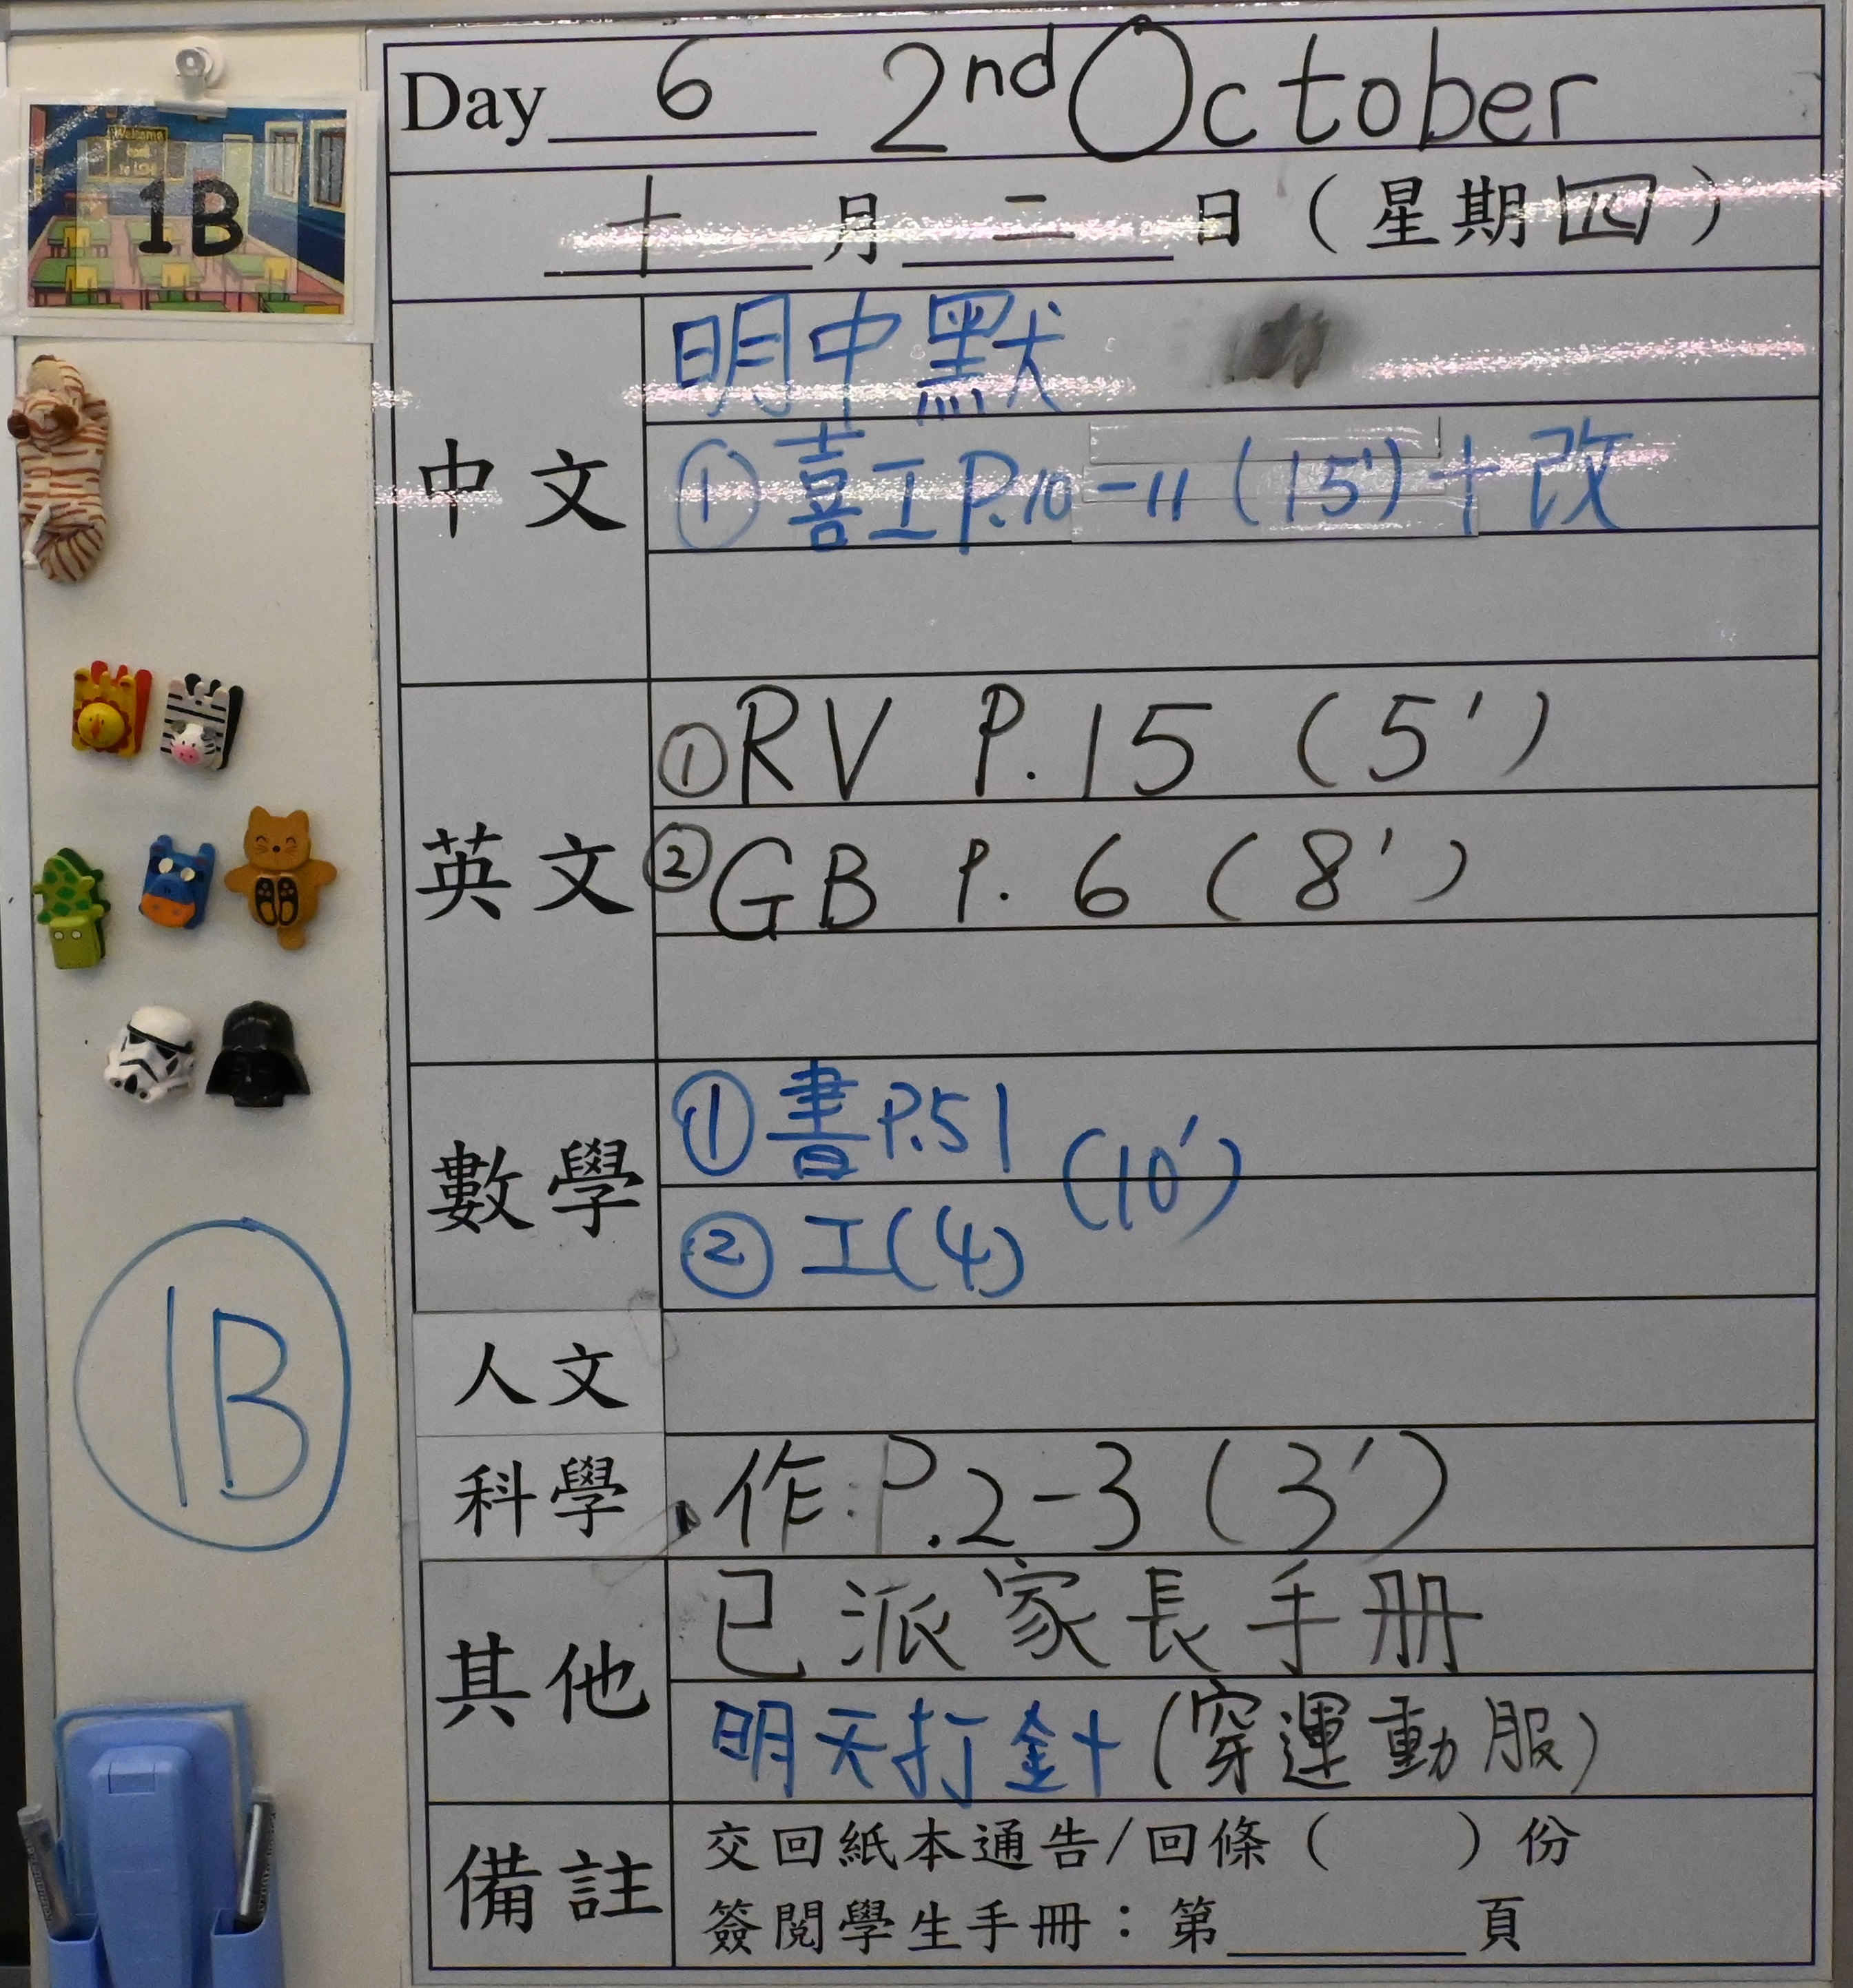 Welcome
back
to LSH
1B
Day 6 2nd October
十 月 二 日 (星期四)
中文
明中默
① 喜工 P.10-11 (15') + 改
英文
① RV P.15 (5')
② GB P.6 (8')
數學
① 書 P.51 (10')
② 工(4)
1B
人文
科學
作:P.2-3 (3')
其他
已派家長手册
明天打針 (穿運動服)
備註
交回紙本通告/回條 ( ) 份
簽閱學生手冊:第______頁